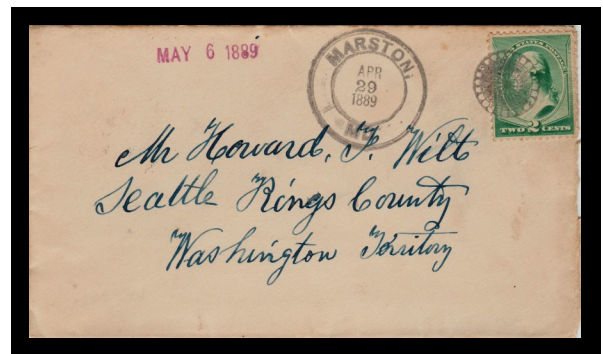 MAY 6 1889
MARSTON,
APR
29
1889
TWO 2 CENTS
Mr Howard. F. Wilt
Seattle Kings County
Washington Territory